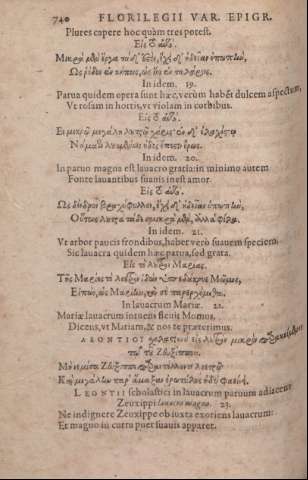 740 FLORILEGII VAR. EPIGR.
Plures capere hoc quàm tres potest.
Εἰς τὸ αὐτό.
Μικρὰ μὲν ἔργα τάδ' ἐστὶν, ἔχει δ' ἡδεῖαν ὀπωπὴν,
Ὡς ῥόδον ἐν κήποις, ὡς ἴον ἐν ταλάροις.
In idem. 19.
Parua quidem opera sunt hæc, verùm habēt dulcem aspectum,
Vt rosam in hortis, vt violam in corbibus.
Εἰς τὸ αὐτό.
Ἐν μικρῷ μεγάλη λουτρῷ χάρις· ἐν δ' ἐλαχίστῳ
Νάματι λουομένοις ἡδὺς ἔπεστιν ἔρως.
In idem. 20.
In paruo magna est lauacro gratia: in minimo autem
Fonte lauantibus suauis inest amor.
Εἰς τὸ αὐτό.
Ὡς δένδρον βραχύφυλλον, ἔχει δ' ἡδεῖαν ὀπωπὴν,
Οὕτως λουτρὰ τάδε μικρὰ μὲν, ἀλλὰ φίλα.
In idem. 21.
Vt arbor paucis frondibus, habet verò suauem speciem,
Sic lauacra quidem hæc parua, sed grata.
Εἰς τὸ λουτρὸν Μαρίας.
Τῆς Μαρίας τὸ λουτρὸν ἰδὼν Μῶμος,
Εἰπὼν, ὡς Μαρίαν, καὶ σὲ παρερχόμεθα.
In lauacrum Mariæ 22.
Mariæ lauacrum intuens fleuit Momus,
Dicens, vt Mariam, & nos te præterimus.
ΛΕΟΝΤΙΟΥ εἰς λουτρὸν μικρὸν
τοῦ Ζευξίππου.
Μὴ νεμέσα Ζεύξιππε λοετρῷ·
Καὶ μεγάλην παρ' ἄμαξαν ἐρωτύλος ἡδὺ φαείνει.
LEONTII scholastici in lauacrum paruum adiacens
Zeuxippi lauacro magno. 23.
Ne indignere Zeuxippe ob iuxta exoriens lauacrum:
Et magno in curru puer suauis apparet.